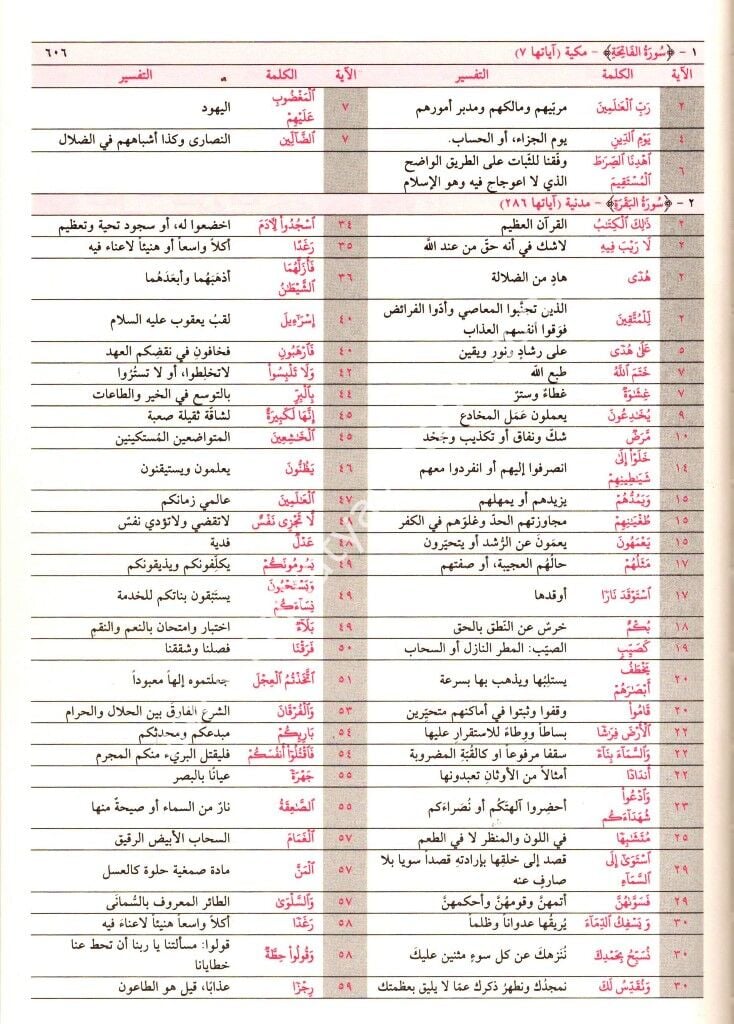 ١ - ﴿سُورَةُ الفَاتِحَةِ﴾ - مكية (آياتها ٧) ٦٠٦
الآية الكلمة التفسير
٢ رَبِّ الْعَٰلَمِينَ مربّيهم ومالكهم ومدبر أمورهم
٤ يَوْمِ الدِّينِ يوم الجزاء، أو الحساب.
٦ اهْدِنَا الصِّرَٰطَ وفّقنا للثّبات على الطريق الواضح
الْمُسْتَقِيمَ الذي لا اعوجاج فيه وهو الإسلام
الآية الكلمة التفسير
٧ الْمَغْضُوبِ
عَلَيْهِمْ اليهود
٧ الضَّآلِّينَ النصارى وكذا أشباههم في الضلال
٢ - ﴿سُورَةُ البَقَرَةِ﴾ - مدنية (آياتها ٢٨٦)
٢ ذَٰلِكَ الْكِتَٰبُ القرآن العظيم
٢ لَا رَيْبَ فِيهِ لاشك في أنه حقّ من عند الله
٢ هُدًى هادٍ من الضلالة
٢ لِلْمُتَّقِينَ الذين تجنّبوا المعاصي وأدّوا الفرائض
فوَقوا أنفسهم العذاب
٥ عَلَىٰ هُدًى على رشادٍ ونورٍ ويقين
٧ خَتَمَ اللَّهُ طبع الله
٧ غِشَٰوَةٌ غطاءٌ وسترٌ
٩ يُخَٰدِعُونَ يعملون عَمَل المخادع
١٠ مَّرَضٌ شكّ ونفاق أو تكذيب وجَحْد
١٤ خَلَوْا إِلَىٰ
شَيَٰطِينِهِمْ انصرفوا إليهم أو انفردوا معهم
١٥ وَيَمُدُّهُمْ يزيدهم أو يمهلهم
١٥ طُغْيَٰنِهِمْ مجاوزتهم الحدّ وغلوّهم في الكفر
١٥ يَعْمَهُونَ يعمَونَ عن الرُّشد أو يتحيّرون
١٧ مَثَلُهُمْ حالُهُم العجيبة، أو صفتهم
١٧ اسْتَوْقَدَ نَارًا أوقدها
١٨ بُكْمٌ خرسٌ عن النّطق بالحق
١٩ كَصَيِّبٍ الصيّب: المطر النازل أو السحاب
٢٠ يَخْطَفُ
أَبْصَٰرَهُمْ يستلِبُها ويذهب بها بسرعة
٢٠ قَامُوا وقفوا وثبتوا في أماكنهم متحيّرين
٢٢ الْأَرْضَ فِرَٰشًا بساطاً ووِطاءً للاستقرار عليها
٢٢ وَالسَّمَآءَ بِنَآءً سقفا مرفوعاً او كالقُبّة المضروبة
٢٢ أَندَادًا أمثالاً من الأوثان تعبدونها
٢٣ وَادْعُوا
شُهَدَآءَكُم أحضِروا آلهتَكُم أو نُصَراءَكم
٢٥ مُتَشَٰبِهًا في اللون والمنظر لا في الطعم
٢٩ اسْتَوَىٰ إِلَى
السَّمَآءِ قصد إلى خلقها بإرادتهِ قصداً سويا بلا
صارفٍ عنه
٢٩ فَسَوَّىٰهُنَّ أتمهنَّ وقومهُنَّ وأحكمهنَّ
٣٠ وَيَسْفِكُ الدِّمَآءَ يُريقُها عدواناً وظلماً
٣٠ نُسَبِّحُ بِحَمْدِكَ نُنَزهكَ عن كل سوءٍ مثنين عليكَ
٣٠ وَنُقَدِّسُ لَكَ نمجدُك ونطهرُ ذكرك عمّا لا يليق بعظمتك
٣٤ اسْجُدُوا لِآدَمَ اخضعوا له، أو سجود تحية وتعظيم
٣٥ رَغَدًا أكلاً واسعاً أو هنيئاً لاعناء فيه
٣٦ فَأَزَلَّهُمَا
الشَّيْطَٰنُ أذهبَهُما وأبعدَهُما
٤٠ إِسْرَٰٓءِيلَ لقبُ يعقوب عليه السلام
٤٠ فَارْهَبُونِ فخافونِ في نقضِكم العهد
٤٢ وَلَا تَلْبِسُوا لاتخلِطوا، أو لا تستُرُوا
٤٤ بِالْبِرِّ بالتوسع في الخير والطاعات
٤٥ إِنَّهَا لَكَبِيرَةٌ لشاقّة ثقيلة صعبة
٤٥ الْخَٰشِعِينَ المتواضعين المُستكينين
٤٦ يَظُنُّونَ يعلمون ويستيقنون
٤٧ الْعَٰلَمِينَ عالمي زمانكم
٤٨ لَّا تَجْزِى نَفْسٌ لاتقضي ولاتؤدي نفسٌ
٤٨ عَدْلٌ فدية
٤٩ يَسُومُونَكُمْ يكلّفونكم ويذيقونكم
٤٩ وَيَسْتَحْيُونَ
نِسَآءَكُمْ يستَبْقون بناتكم للخدمة
٤٩ بَلَآءٌ اختبار وامتحان بالنعم والنقم
٥٠ فَرَقْنَا فصلنا وشققنا
٥١ اتَّخَذْتُمُ الْعِجْلَ جعلتموه إلهاً معبوداً
٥٣ وَالْفُرْقَانَ الشرع الفارق بين الحلال والحرام
٥٤ بَارِئِكُمْ مبدعكم ومحدثكم
٥٤ فَاقْتُلُوٓا أَنفُسَكُمْ فليقتل البريء منكم المجرم
٥٥ جَهْرَةً عيانًا بالبصر
٥٥ الصَّٰعِقَةُ نارٌ من السماء أو صيحةٌ منها
٥٧ الْغَمَامَ السحاب الأبيض الرقيق
٥٧ الْمَنَّ مادة صمغية حلوة كالعسل
٥٧ وَالسَّلْوَىٰ الطائر المعروف بالسُّمانى
٥٨ رَغَدًا أكلاً واسعاً هنيئاً لاعناء فيه
٥٨ وَقُولُوا حِطَّةٌ قولوا: مسألتنا يا ربنا أن تحط عنا
خطايانا
٥٩ رِجْزًا عذابًا، قيل هو الطاعون